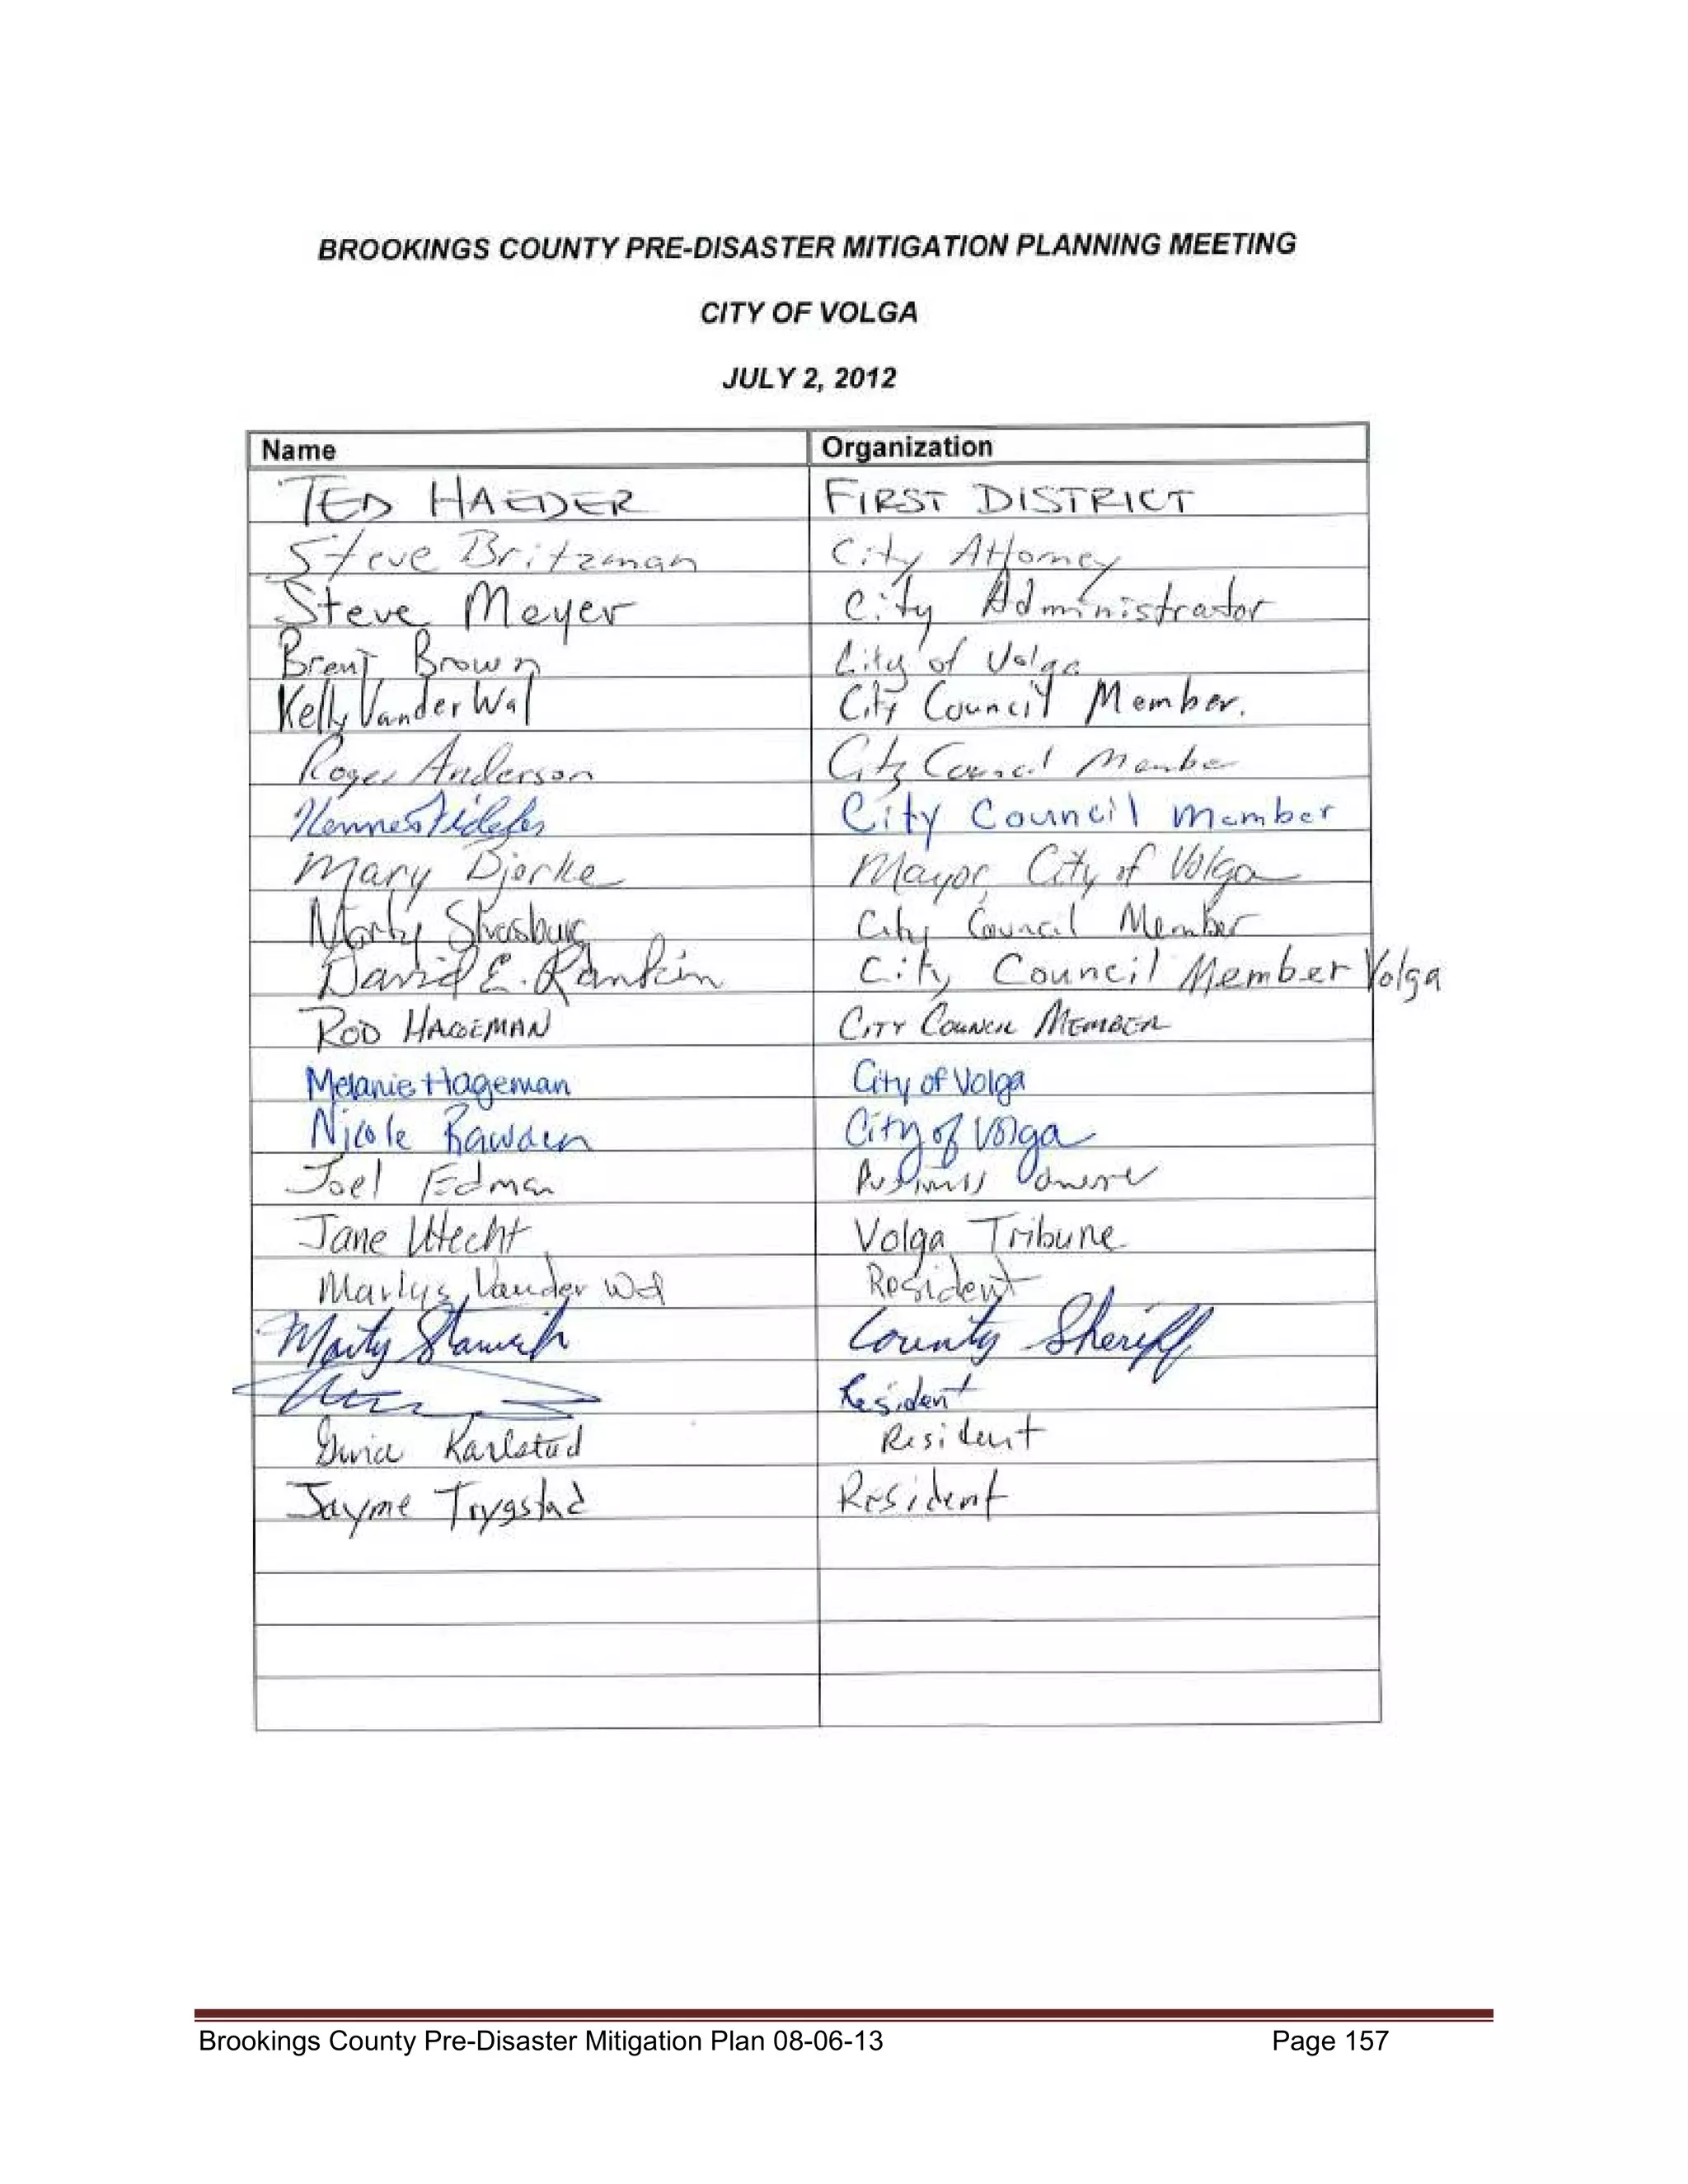 BROOKINGS COUNTY PRE-DISASTER MITIGATION PLANNING MEETING
CITY OF VOLGA
JULY 2, 2012
Name Organization
TED HAEDER FIRST DISTRICT
Steve Britzman City Attorney
Steve Meyer City Administrator
Brent Brown City of Volga
Kelly VanderWal City Council Member.
Roger Anderson City Council Member
City Council Member
Mary Bjerke Mayor, City of Volga
Marty Strasburg City Council Member
David E. Rankin City Council Member Volga
ROD HAGEMAN CITY COUNCIL MEMBER
Melanie Hageman City of Volga
Nicole Rawden City of Volga
Joel Edman Business Owner
Jane Utecht Volga Tribune
Marlys Vander Wal Resident
Marty Stanwick County Sheriff
Resident
Karlstad Resident
Jayme Trygstad Resident
Brookings County Pre-Disaster Mitigation Plan 08-06-13 Page 157